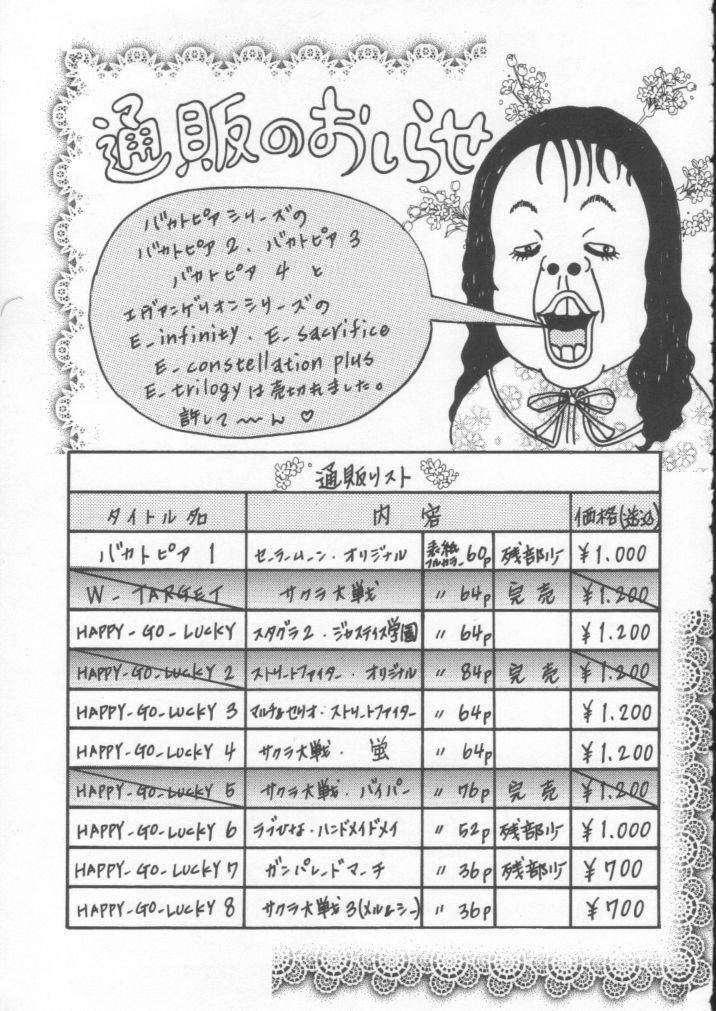 通販のおしらせ
バカトピアシリーズの
バカトピア2、バカトピア3
バカトピア4と
エヴァンゲリオンシリーズの
E-infinity. E-sacrifice
E-constellation plus
E-trilogyは売切れました。
許して〜〜ん♡
通販リスト
タイトル名 内容 価格(送込)
バカトピア 1 セーラームーン・オリジナル 表紙フルカラー60p 残部少 ¥1.000
W-TARGET サクラ大戦 〃 64p 完売 ¥1.200
HAPPY-GO-LUCKY スタグラ2・ジャスティス学園 〃 64p ¥1.200
HAPPY-GO-LUCKY 2 ストリートファイター・オリジナル 〃 84p 完売 ¥1.200
HAPPY-GO-LUCKY 3 マルチ&セリオ・ストリートファイター 〃 64p ¥1.200
HAPPY-GO-LUCKY 4 サクラ大戦・蛍 〃 64p ¥1.200
HAPPY-GO-LUCKY 5 サクラ大戦・バイパー 〃 76p 完売 ¥1.200
HAPPY-GO-LUCKY 6 ラブひな・ハンドメイドメイ 〃 52p 残部少 ¥1.000
HAPPY-GO-LUCKY 7 ガンパレードマーチ 〃 36p 残部少 ¥700
HAPPY-GO-LUCKY 8 サクラ大戦3(メル&シー) 〃 36p ¥700